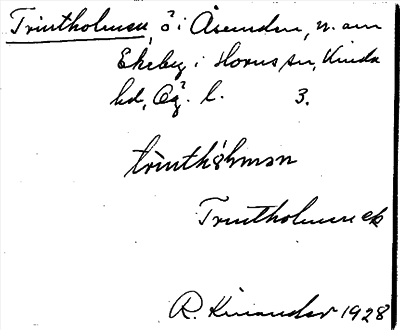 Trintholmen, ö i Åsunden, n. om
Ekeby i Horns sn, Kinda
hd, Ög. l. 3.
trìnthólmən
Trintholmen ek
R. Kinander 1928